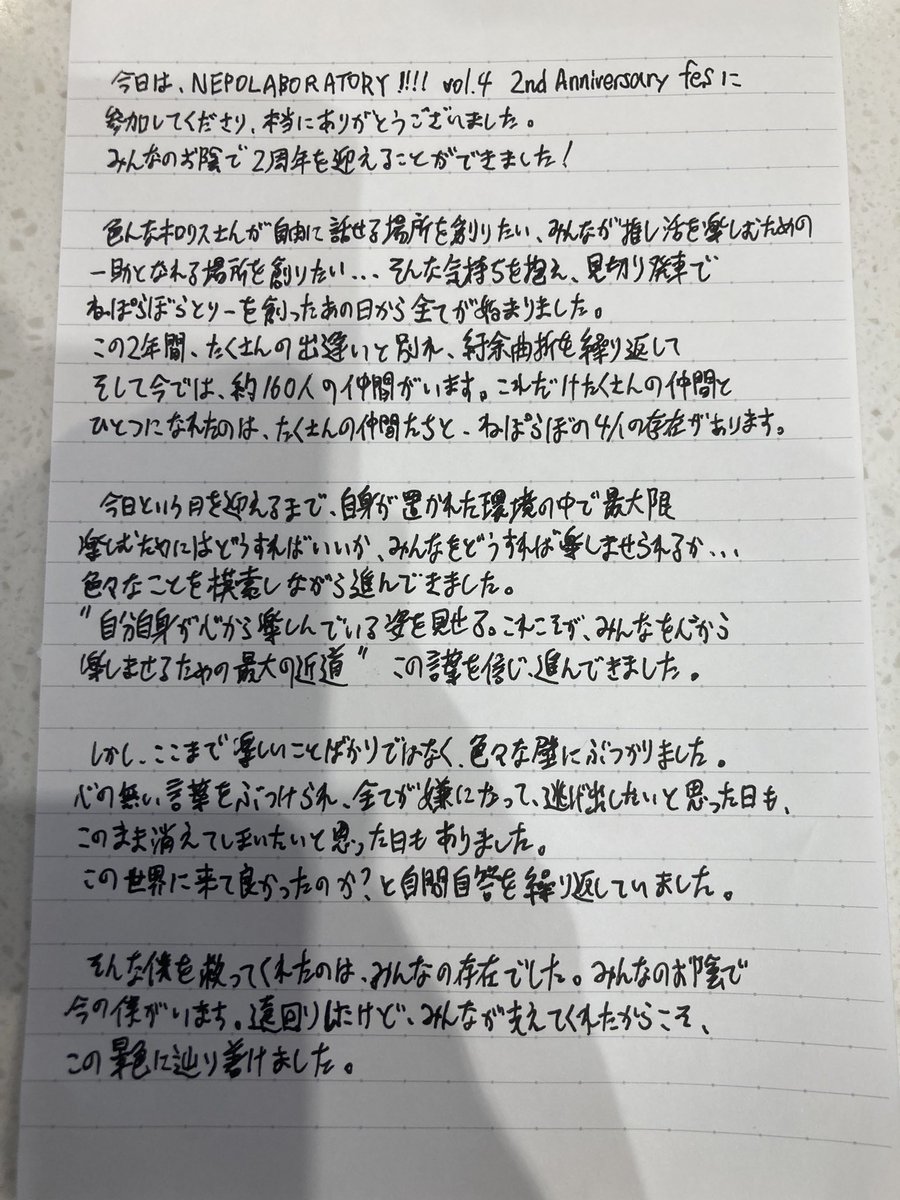 今日は、NEPOLABORATORY!!!! vol.4 2nd Anniversary fesに
参加してくださり、本当にありがとうございました。
みんなのお陰で2周年を迎えることができました!
色んなホロリスさんが自由に話せる場所を創りたい、みんなが推し活を楽しむための
一助となれる場所を創りたい... そんな気持ちを抱え、見切り発車で
ねぽらぼらとりーを創ったあの日から全てが始まりました。
この2年間、たくさんの出逢いと別れ、紆余曲折を繰り返して
そして今では、約160人の仲間がいます。これだけたくさんの仲間と
ひとつになれたのは、たくさんの仲間たちと、ねぽらぼの4人の存在があります。
今日という月を迎えるまで、自身が置かれた環境の中で最大限
楽しむためにはどうすればいいか、みんなをどうすれば楽しませられるか...
色々なことを模索しながら進んできました。
"自分自身が心から楽しんでいる姿を見せる。これこそが、みんなを心から
楽しませるための最大の近道" この言葉を信じ、進んできました。
しかし、ここまで楽しいことばかりではなく、色々な壁にぶつかりました。
心の無い言葉をぶつけられ、全てが嫌になって、逃げ出したいと思った日も、
このまま消えてしまいたいと思った日もありました。
この世界に来て良かったのか?と自問自答を繰り返していました。
そんな僕を救ってくれたのは、みんなの存在でした。みんなのお陰で
今の僕がいます。遠回りしたけど、みんなが支えてくれたからこそ、
この景色に辿り着けました。